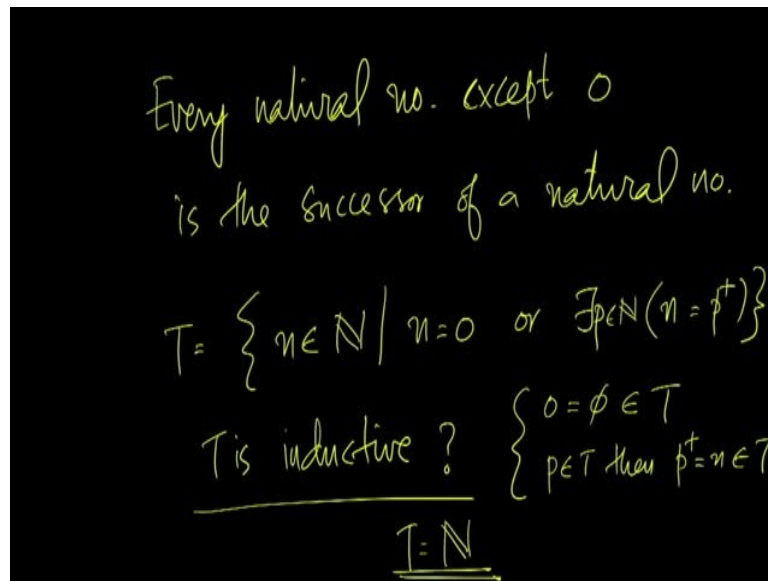 Every natural no. except 0
is the successor of a natural no.
T = { n ∈ ℕ | n = 0 or ∃p∈ℕ (n = p⁺) }
T is inductive ? { 0 = ϕ ∈ T
p ∈ T then p⁺ = n ∈ T
T = ℕ